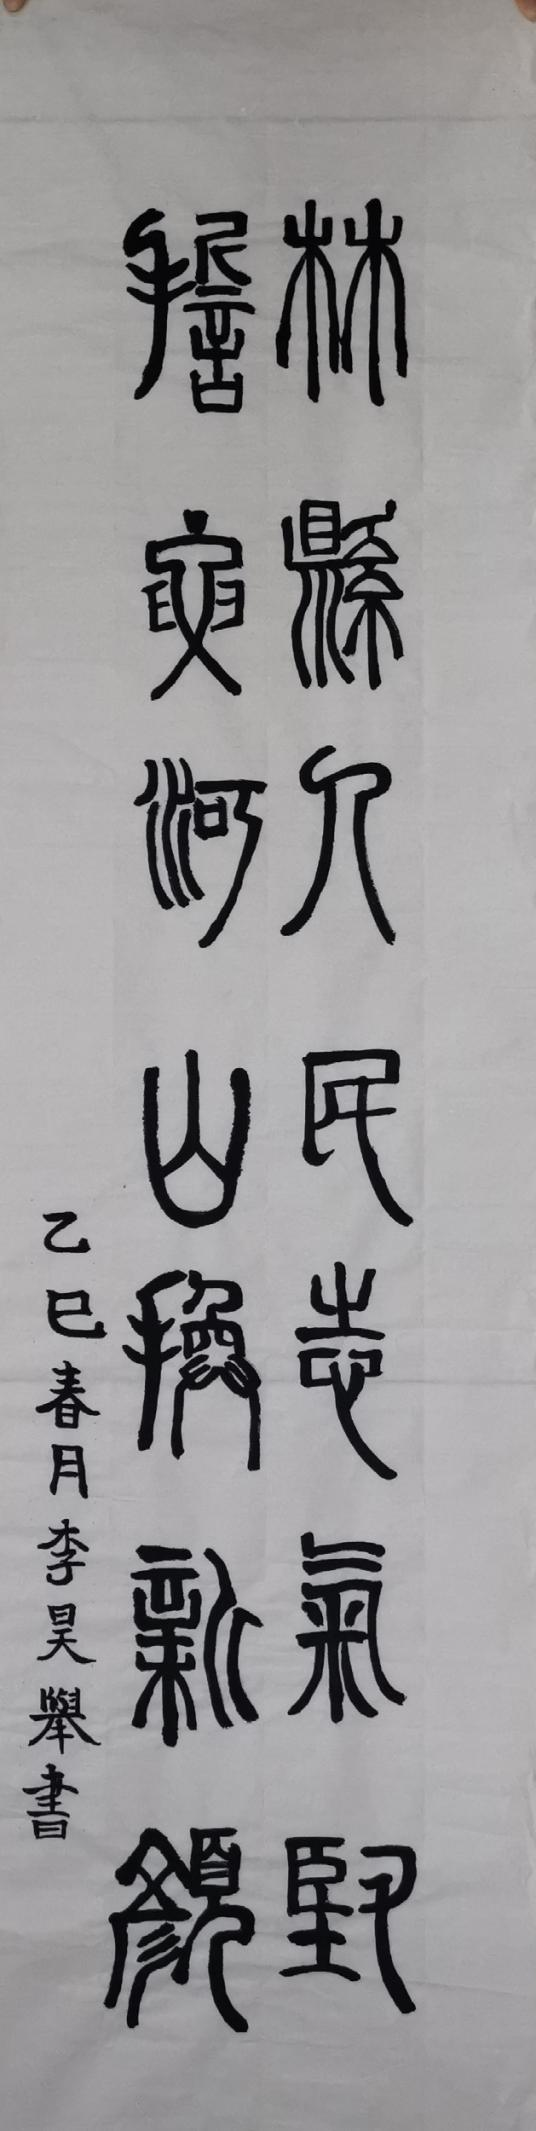 林縣人民志氣堅
擔更河山換新顏
乙巳春月李昊舉書